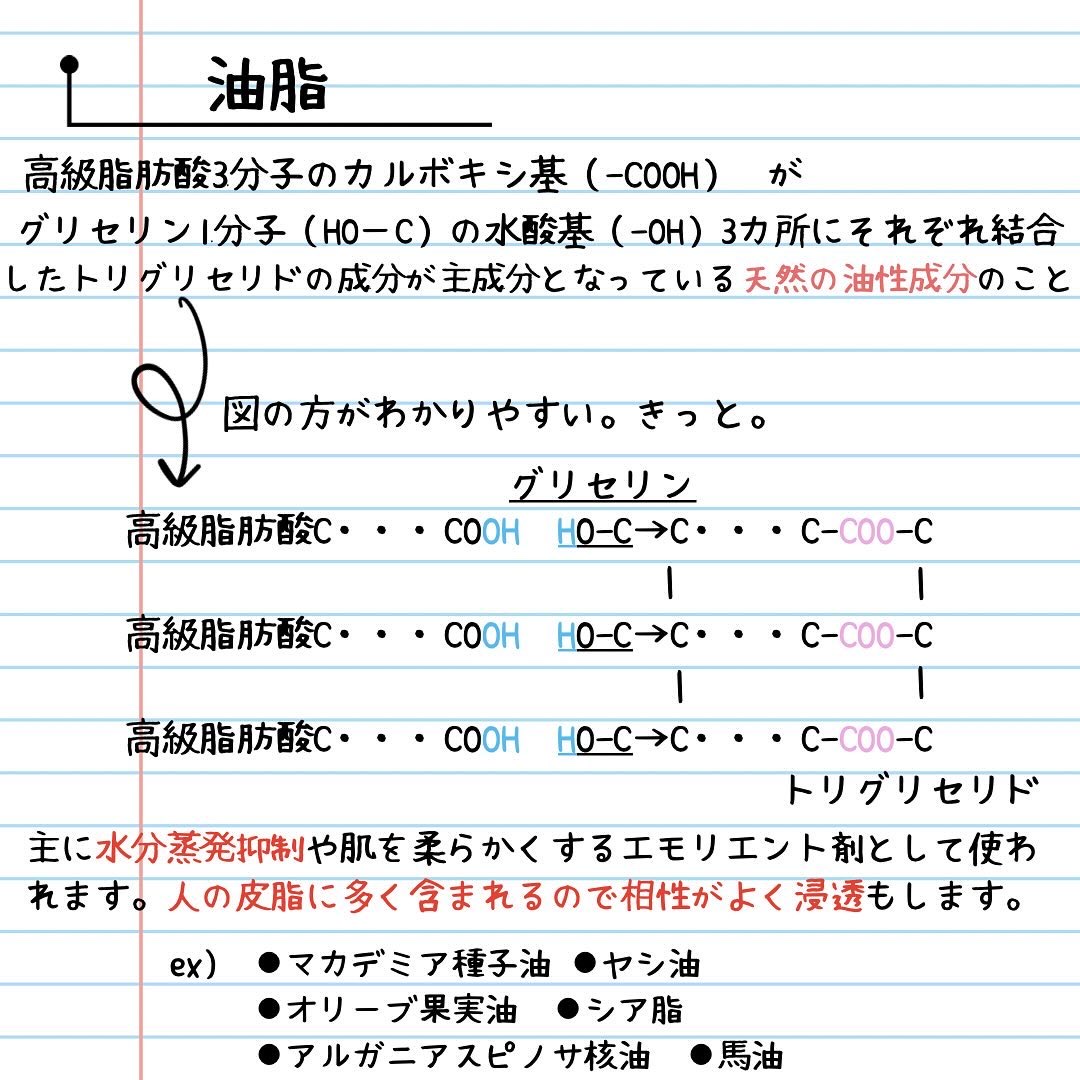 油脂
高級脂肪酸3分子のカルボキシ基(-COOH) が
グリセリン1分子(HO-C)の水酸基(-OH)3カ所にそれぞれ結合
したトリグリセリドの成分が主成分となっている天然の油性成分のこと
図の方がわかりやすい。きっと。
グリセリン
高級脂肪酸C・・・COOH HO-C→C・・・C-COO-C
高級脂肪酸C・・・COOH HO-C→C・・・C-COO-C
高級脂肪酸C・・・COOH HO-C→C・・・C-COO-C
トリグリセリド
主に水分蒸発抑制や肌を柔らかくするエモリエント剤として使わ
れます。人の皮脂に多く含まれるので相性がよく浸透もします。
ex) ●マカデミア種子油 ●ヤシ油
●オリーブ果実油 ●シア脂
●アルガニアスピノサ核油 ●馬油